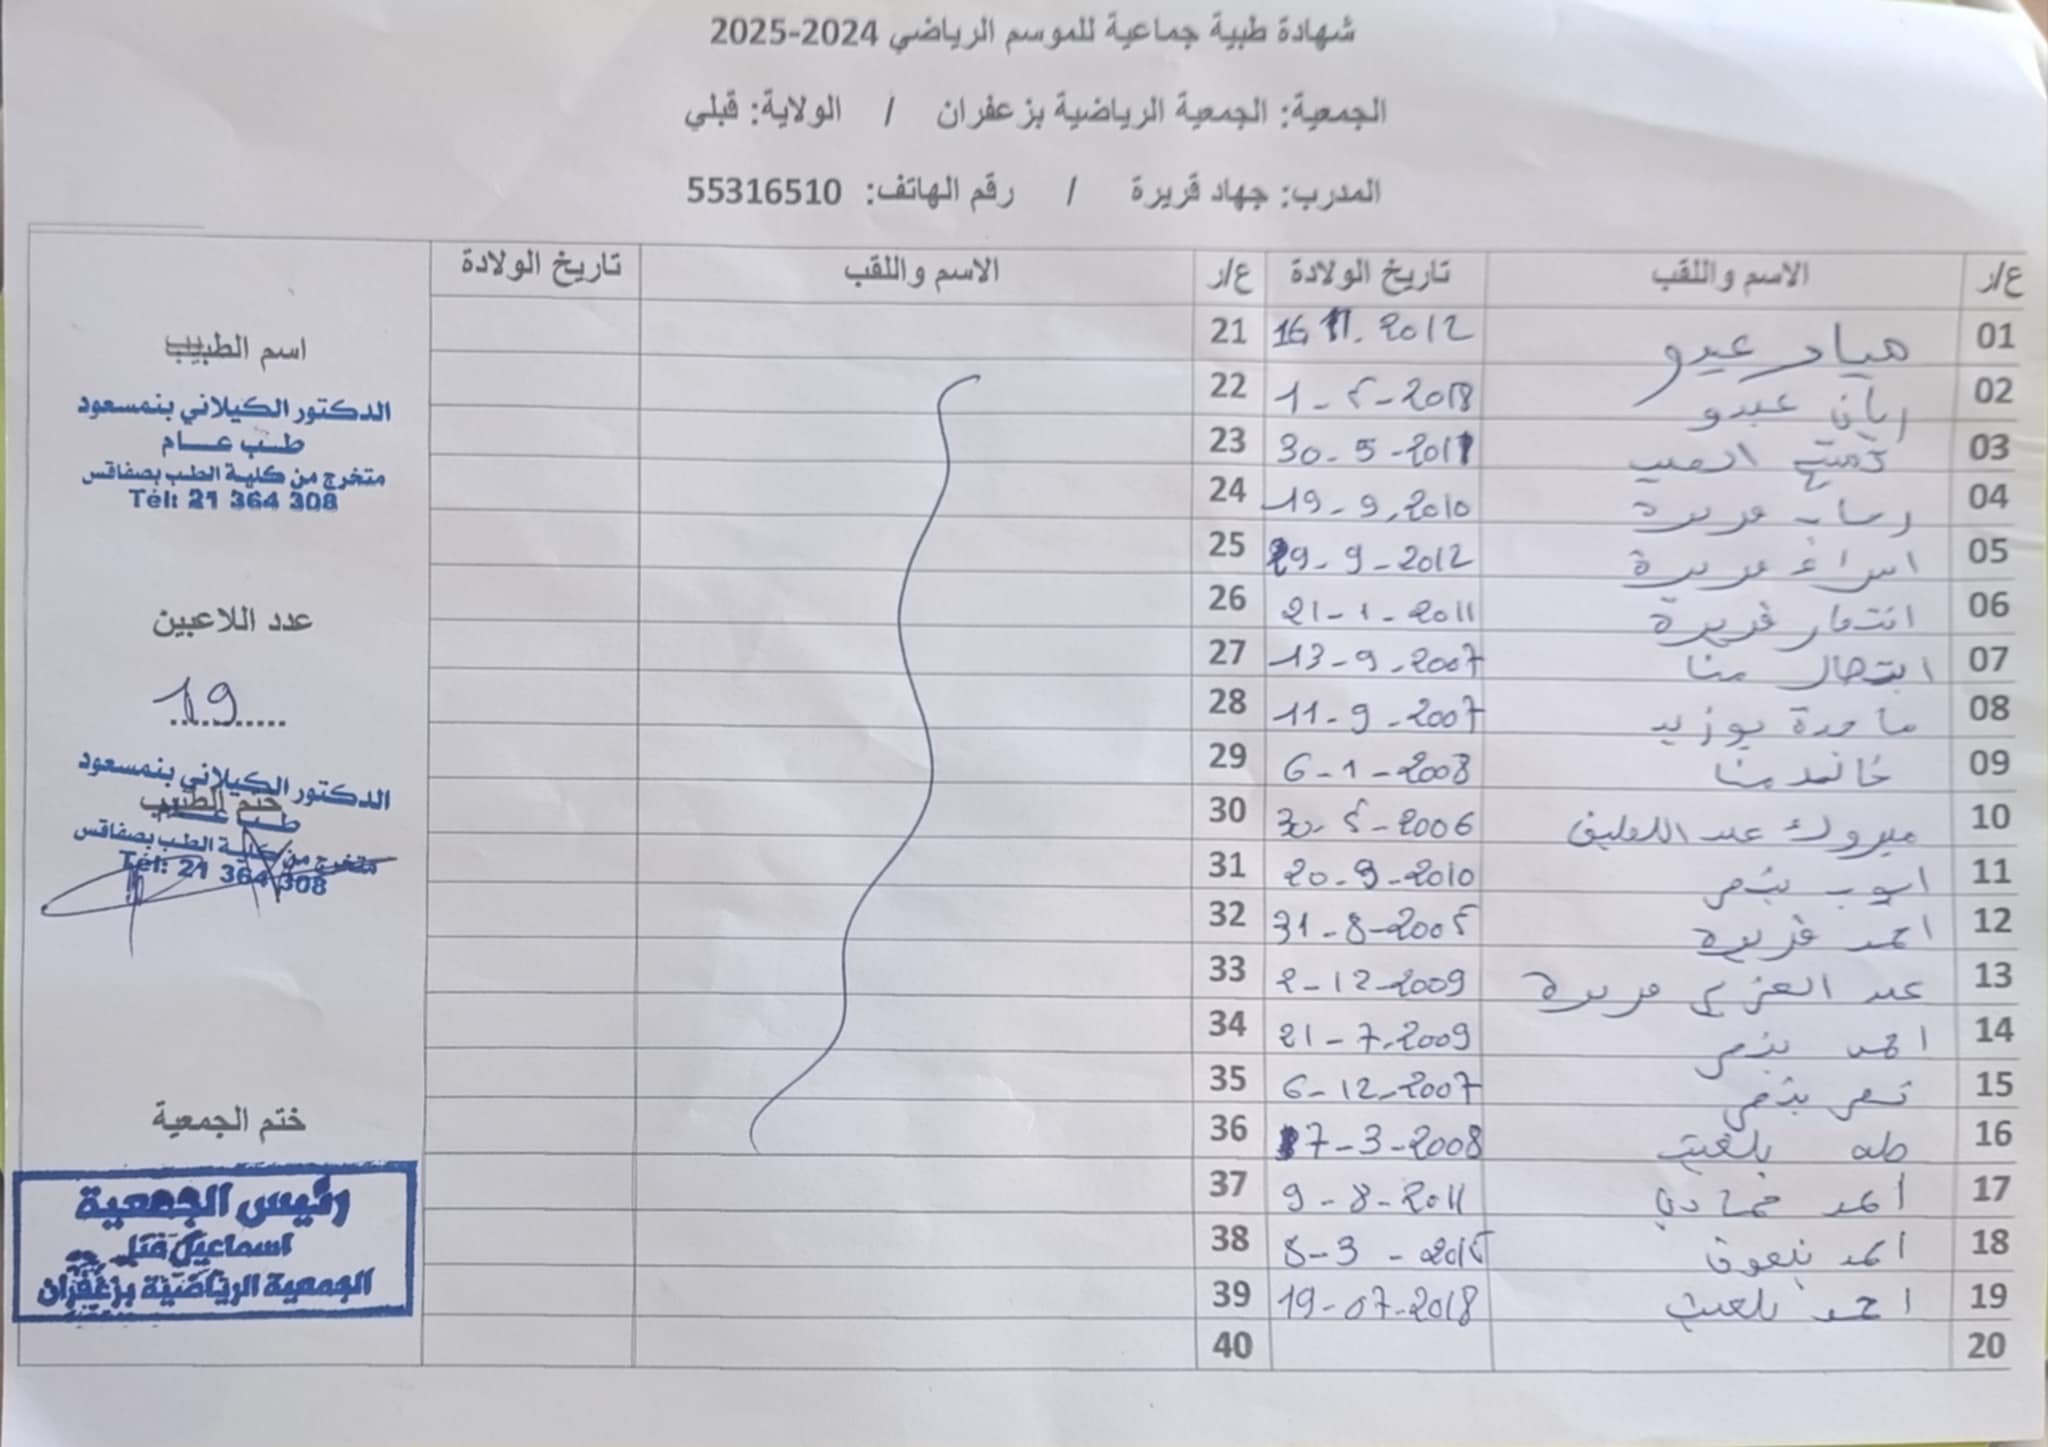 شهادة طبية جماعية للموسم الرياضي 2024-2025
الجمعية: الجمعية الرياضية بزعفران / الولاية: قبلي
المدرب: جهاد قريرة / رقم الهاتف: 55316510
ع/ر الاسم واللقب تاريخ الولادة ع/ر الاسم واللقب تاريخ الولادة
01 عبدو 2012 21
02 ريان عبدو 22
03 30-5-2011 23
04 رحاب قريرة 19-9-2010 24
05 اسراء قريرة 29-9-2012 25
06 انتصار قريرة 21-1-2011 26
07 13-9-2007 27
08 ماجدة بوزيد 11-9-2007 28
09 6-1-2008 29
10 مبروك عبد اللطيف 30-5-2006 30
11 ايوب 20-9-2010 31
12 احمد قريرة 31-8-2005 32
13 عبد العزيز قريرة 2-12-2009 33
14 احمد 21-7-2009 34
15 6-12-2007 35
16 طه بلغيث 7-3-2008 36
17 أحمد حمادي 9-8-2011 37
18 احمد 8-3-2015 38
19 احمد بلغيث 19-07-2018 39
20 40
اسم الطبيب
الدكتور الكيلاني بنمسعود
طب عام
متخرج من كلية الطب بصفاقس
Tél: 21 364 308
عدد اللاعبين
19
الدكتور الكيلاني بنمسعود
ختم الطبيب
طب عام
متخرج من كلية الطب بصفاقس
Tél: 21 364 308
ختم الجمعية
رئيس الجمعية
اسماعيل
الجمعية الرياضية بزعفران